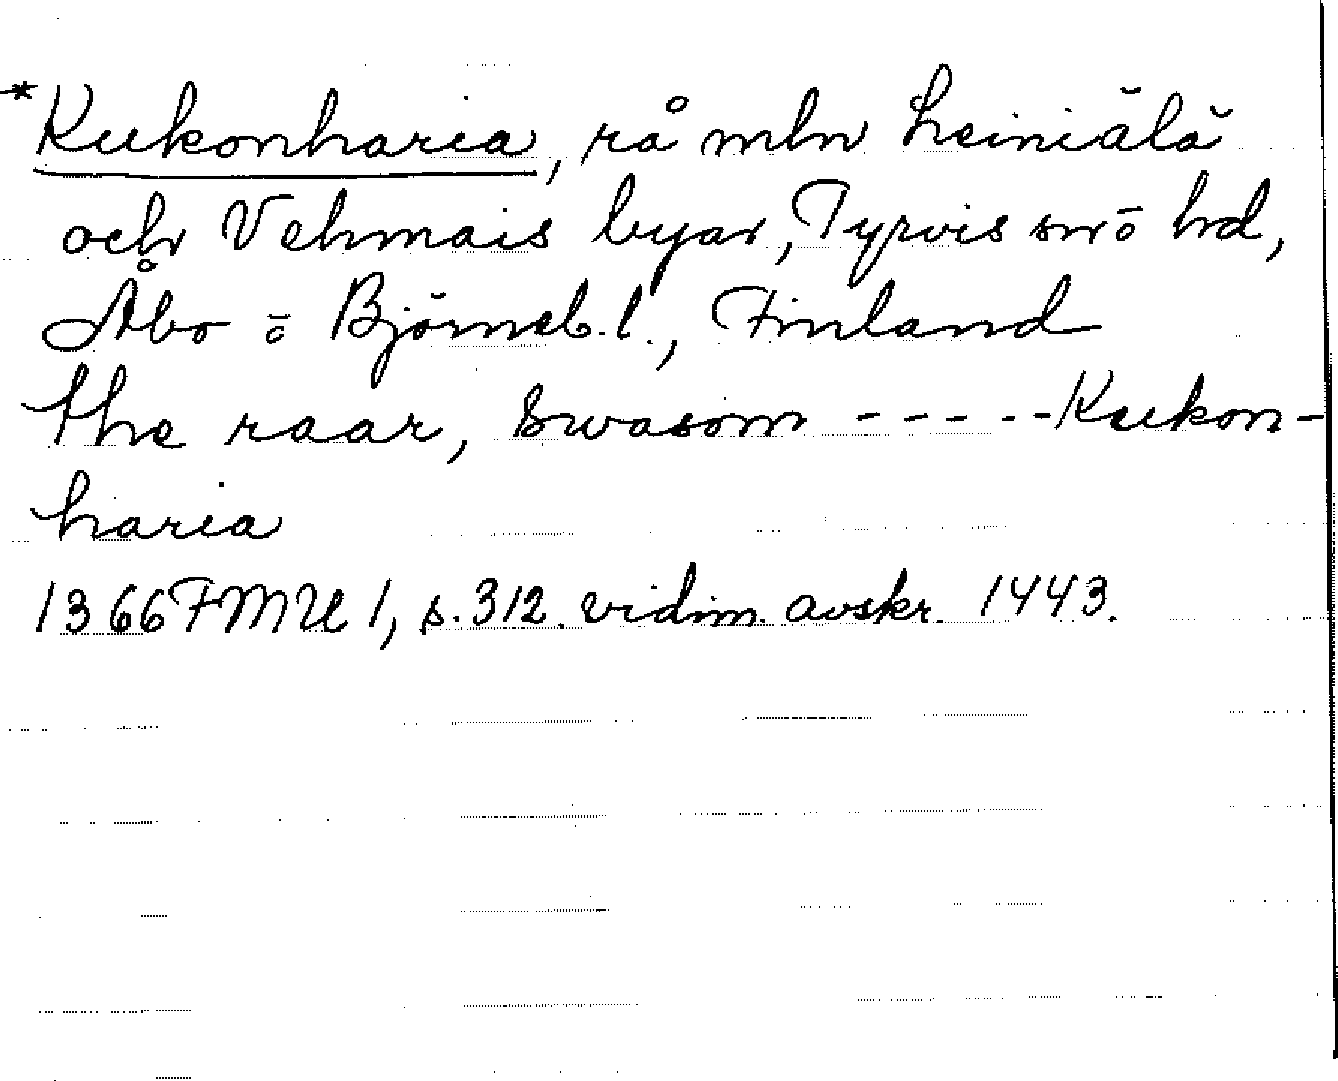 *Kukonharia, rå mln Heiniälä
och Vehmais byar, Tyrvis sn ō hd,
Åbo ō Björneb. l., Finland
the raar, swasom - - - - - Kukon-
haria
1366 FMU 1, s. 312. vidim. avskr. 1443.